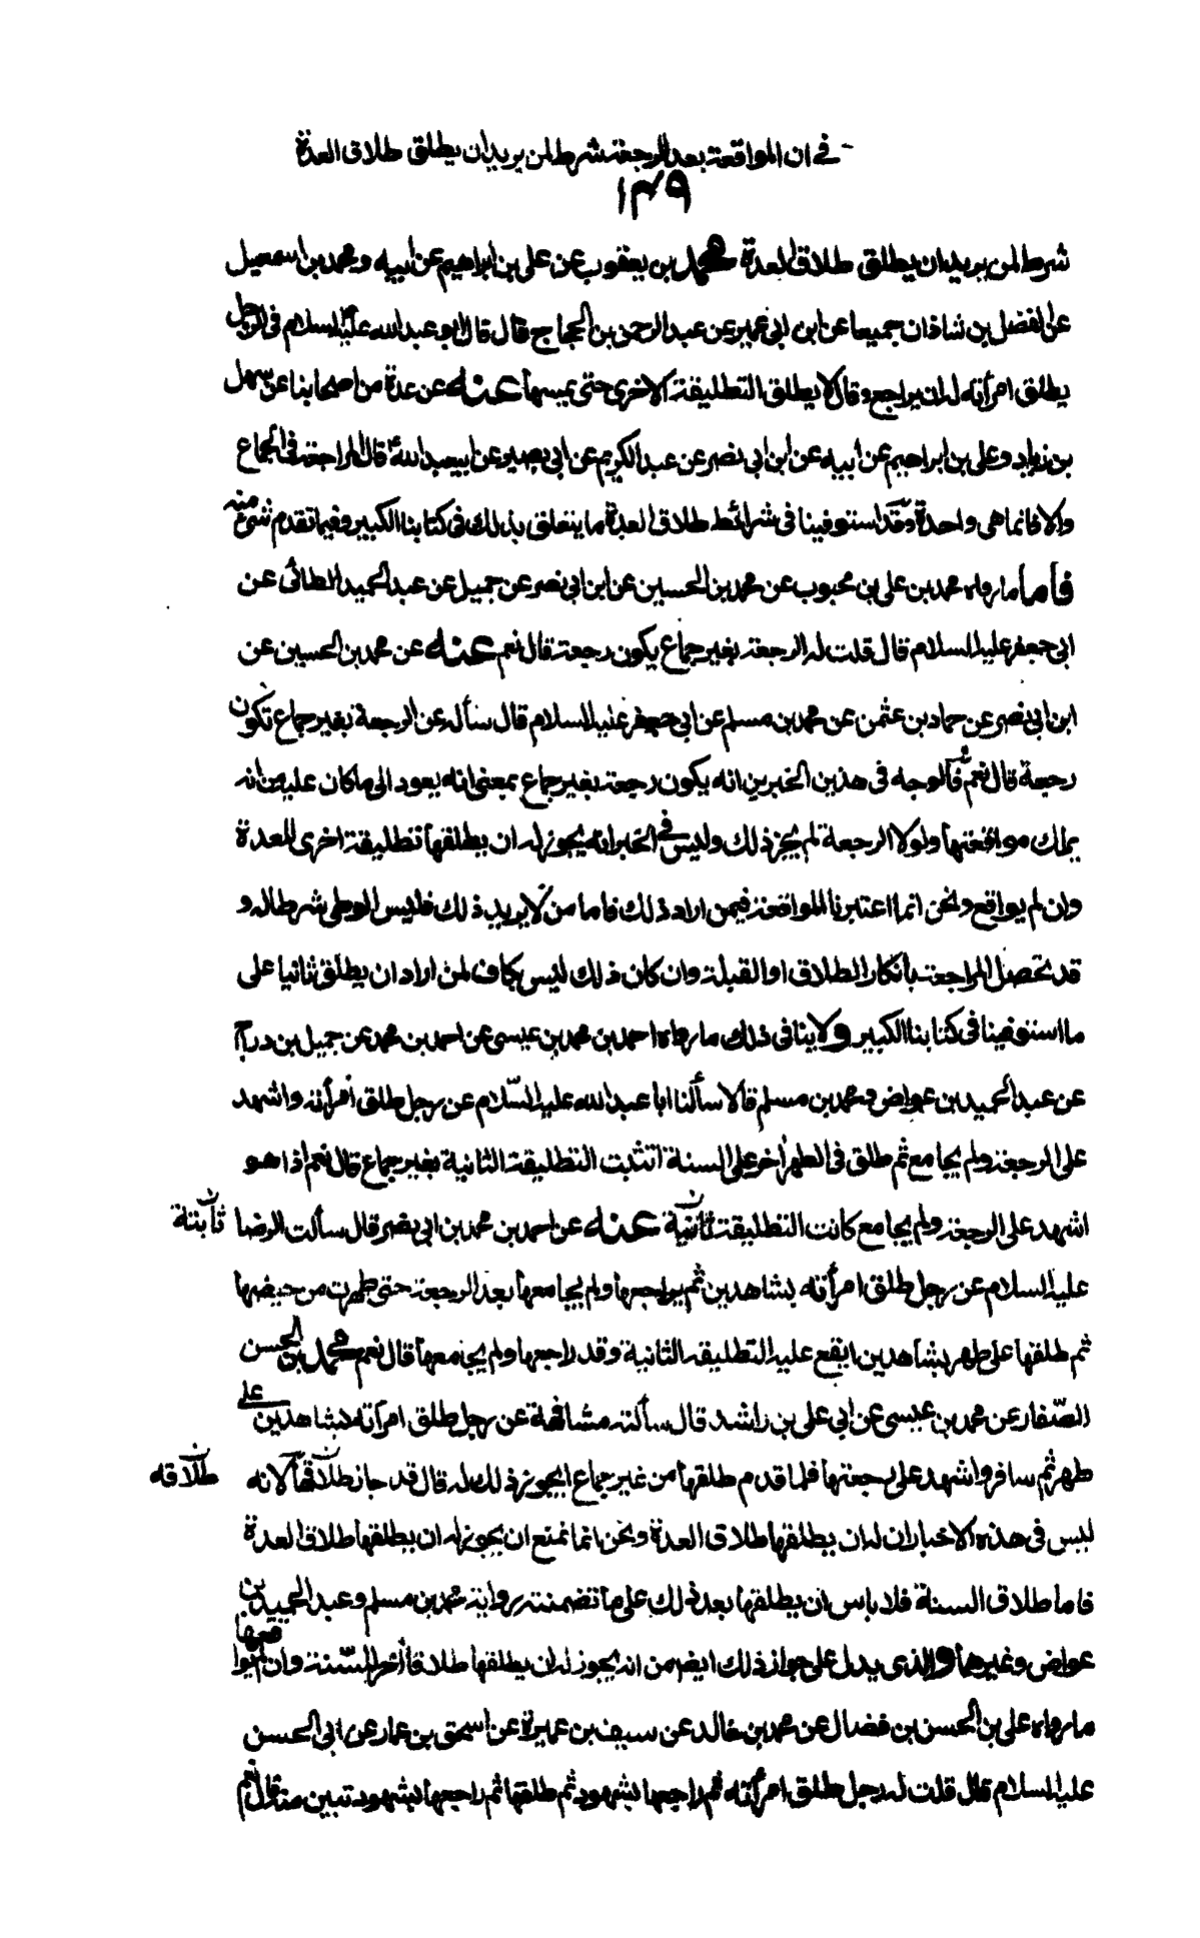 في ان المواقعة بعد الرجعة شرط لمن يريد ان يطلق طلاق العدة
١٣٩
شرط لمن يريد ان يطلق طلاق العدة محمد بن يعقوب عن علي بن ابراهيم عن ابيه ومحمد بن اسمعيل
عن الفضل بن شاذان جميعا عن ابن ابي عمير عن عبد الرحمن بن الحجاج قال قال ابو عبد الله عليه السلام في الرجل
يطلق امرأته له ان يراجع وقال لا يطلق التطليقة الاخرى حتى يمسها عنه عن عدة من اصحابنا عن سهل
بن زياد وعلي بن ابراهيم عن أبيه عن ابن ابي نصر عن عبد الكريم عن ابي بصير عن ابيعبد الله ع قال المراجعة في الجماع
والا فانما هي واحدة وقد استوفينا في شرائط طلاق العدة ما يتعلق بذلك في كتابنا الكبير وفيما تقدم شئ منه
فأما ما رواه محمد بن علي بن محبوب عن محمد بن الحسين عن ابن ابي نصر عن جميل عن عبد الحميد الطائى عن
ابي جعفر عليه السلام قال قلت له الرجعة بغير جماع يكون رجعة قال نعم عنه عن محمد بن الحسين عن
ابن ابي نصر عن حماد بن عثمن عن محمد بن مسلم عن ابي جعفر عليه السلام قال سأله عن الرجعة بغير جماع تكون
رجعة قال نعم فالوجه في هذين الخبرين انه يكون رجعة بغير جماع بمعنى انه يعود الى ما كان عليه من انه
يملك مواقعتها ولولا الرجعة لم يجز ذلك وليس في الخبر انه يجوز له ان يطلقها تطليقة اخرى للعدة
وان لم يواقع ونحن انما اعتبرنا المواقعة فيمن اراد ذلك فاما من لا يريد ذلك فليس الوطي شرطا له و
قد تحصل المراجعة بانكار الطلاق او القبلة وان كان ذلك ليس بكاف لمن اراد ان يطلق ثانيا على
ما استوفينا في كتابنا الكبير ولا ينافى ذلك ما رواه احمد بن محمد بن عيسى عن احمد بن محمد عن جميل بن دراج
عن عبد الحميد بن عواض ومحمد بن مسلم قالا سألنا ابا عبد الله عليه السلام عن رجل طلق امرأته واشهد
على الرجعة ولم يجامع ثم طلق في الطهر أخر على السنة اتثبت التطليقة الثانية بغير جماع قال نعم اذا هو
اشهد على الرجعة ولم يجامع كانت التطليقة ثانية عنه عن احمد بن محمد بن ابي نصر قال سألت الرضا ثابتة
عليه السلام عن رجل طلق امرأته بشاهدين ثم يراجعها ولم يجامعها بعد الرجعة حتى طهرت من حيضها
ثم طلقها على طهر بشاهدين ايقع عليه التطليقة الثانية وقد راجعها ولم يجامعها قال نعم محمد بن الحسن
الصّفار عن محمد بن عيسى عن ابي علي بن راشد قال سألته مشافهة عن رجل طلق امرأته بشاهدين على
طهر ثم سافر واشهد على رجعتها فلما قدم طلقها من غير جماع ايجوز ذلك له قال قد جاز طلاقها لانه طلاقه
ليس في هذه الاخبار ان له ان يطلقها طلاق العدة ونحن انما نمنع ان يجوز له ان يطلقها طلاق العدة
فاما طلاق السنة فلا باس ان يطلقها بعد ذلك على ما تضمنته رواية محمد بن مسلم وعبد الحميد بن
عواض وغيرهما والذى يدل على جواز ذلك ايضا من انه يجوز له ان يطلقها طلاقا أخر للسّنة وان لم يواقعها
ما رواه علي بن الحسن بن فضال عن محمد بن خالد عن سيف بن عميرة عن اسحق بن عمار عن ابي الحسن
عليه السلام قال قلت له رجل طلق امرأته ثم راجعها بشهود ثم طلقها ثم راجعها بشهود تبين منه قال نعم